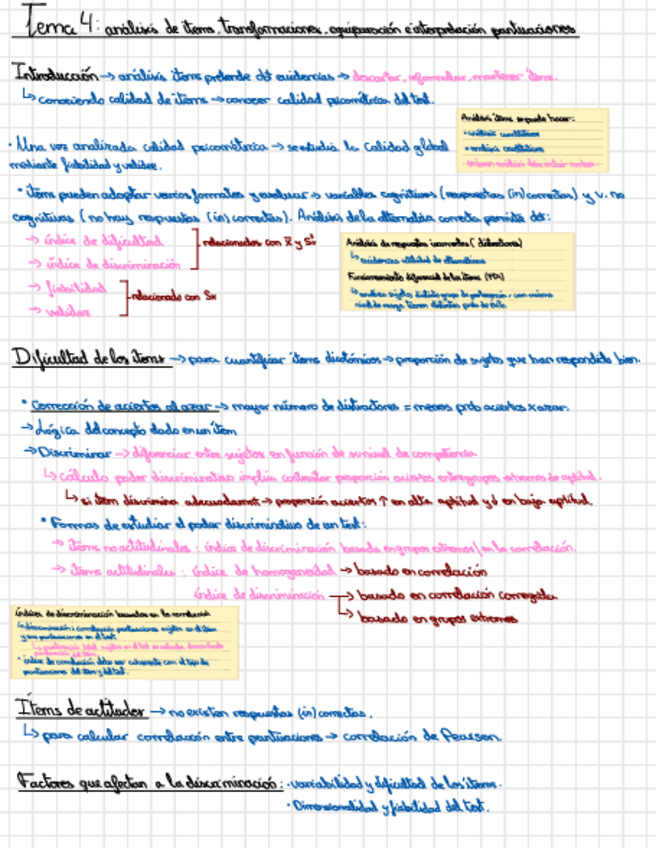 Tema 4: análisis de ítems, transformaciones, equiparación e interpretación puntuaciones
Introducción → análisis ítems pretende dt evidencias → descartar, reformular, mantener ítems.
↳ conociendo calidad de ítems → conocer calidad psicométrica del test.
Análisis ítems se puede hacer:
· análisis cualitativo
· análisis cuantitativo
· Una vez analizada calidad psicométrica → se estudia la calidad global
mediante fiabilidad y validez.
· ítems pueden adoptar varios formatos y evaluar → variables cognitivas (respuestas (in)correctas) y v. no
cognitivas (no hay respuestas (in)correctas). Análisis de la alternativa correcta permite dt:
→ índice de dificultad
→ índice de discriminación
relacionados con x̄ y S²
→ fiabilidad
→ validez
relacionado con Sx
Análisis de respuestas incorrectas (distractores)
↳ evidencias utilidad de alternativas
Funcionamiento diferencial de los ítems (FDI)
↳ analiza sujetos distinto grupo de pertenencia y con mismo
nivel de rasgo tienen distintas prob de éxito.
Dificultad de los ítems → para cuantificar ítems dicotómicos → proporción de sujetos que han respondido bien.
· Corrección de aciertos al azar → mayor número de distractores = menos prob aciertos x azar.
→ Lógica del concepto dado en un ítem
→ Discriminar → diferenciar entre sujetos en función de su nivel de competencia.
↳ cálculo poder discriminativo implica contrastar proporción aciertos entre grupos extremos de aptitud.
↳ si ítem discrimina adecuadamente → proporción aciertos ↑ en alta aptitud y ↓ en baja aptitud.
· Formas de estudiar el poder discriminativo de un test:
→ ítems no actitudinales: índice de discriminación basado en grupos extremos/en la correlación.
→ ítems actitudinales: índice de homogeneidad → basado en correlación
índice de discriminación → basado en correlación corregida
↳ basado en grupos extremos
Índices de discriminación basados en la correlación
· discriminación: correlación puntuaciones sujetos en el ítem
y sus puntuaciones en el test.
↳ puntuación total sujetos en el test se calcula descontando
puntuación del ítem.
· índice de correlación debe ser coherente con el tipo de
puntuaciones del ítem y del test.
Ítems de actitudes → no existen respuestas (in)correctas.
↳ para calcular correlación entre puntuaciones → correlación de Pearson.
Factores que afectan a la discriminació: · variabilidad y dificultad de los ítems.
· Dimensionalidad y fiabilidad del test.